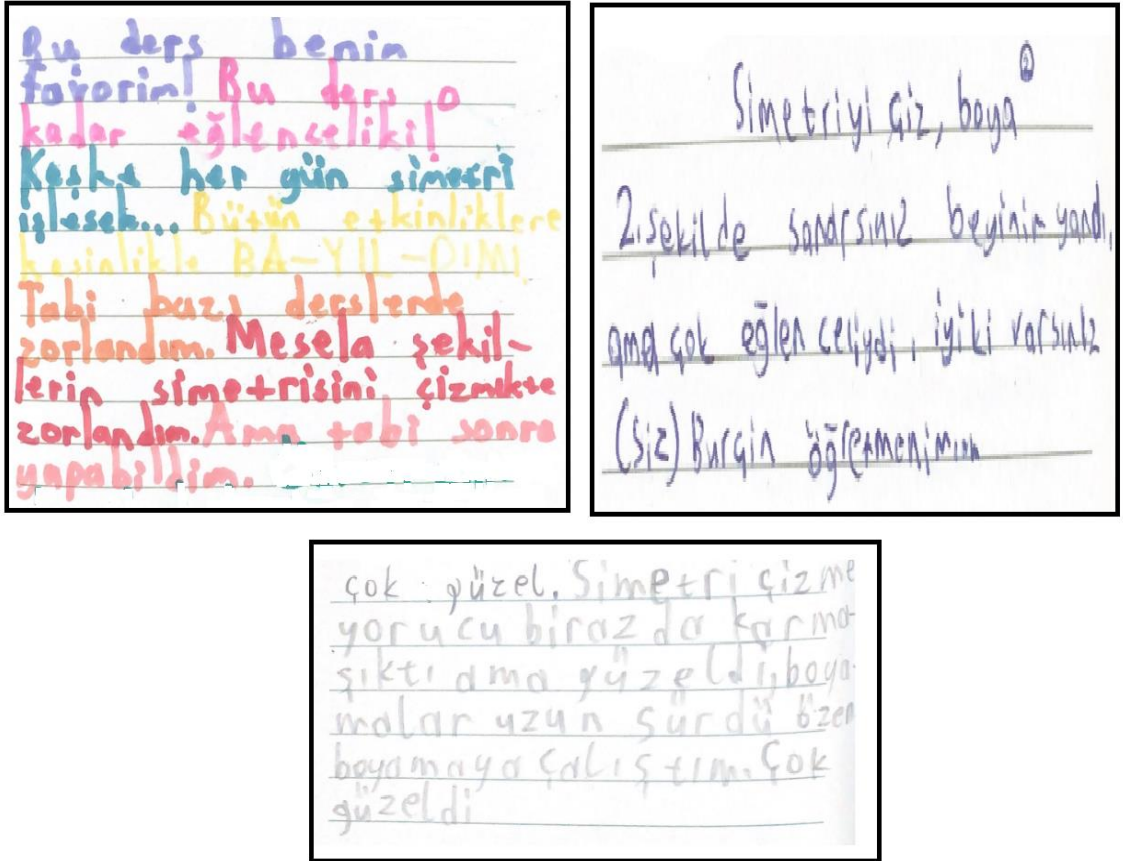 Bu ders benim
favorim! Bu ders o
kadar eğlenceliki!
Keşke her gün simetri
işlesek... Bütün etkinliklere
kesinlikle BA-YIL-DIM!
Tabi bazı derslerde
zorlandım. Mesela şekil-
lerin simetrisini çizmekte
zorlandım. Ama tabi sonra
yapabildim.
Simetriyi çiz, boya 2
2. şekilde sanarsınız beyinim yandı,
ama çok eğlen celiydi, iyiki varsınız
(siz) Burçin öğretmenimmm
çok güzel. Simetri çizme
yorucu biraz da karma-
şıktı ama güzeldi, boya-
malar uzun sürdü özen
boyamaya çalıştım. Çok
güzeldi